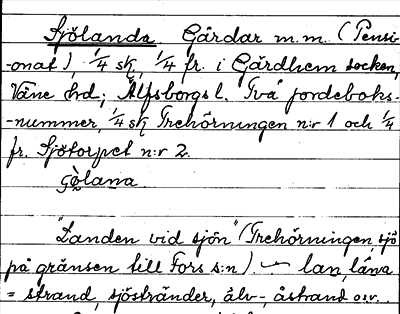 Sjölanda. Gårdar m.m. (Pensi-
-onat), 1/4 sk, 1/4 fr. i Gärdhem socken,
Väne hd; Älfsborgs l. Två jordeboks-
-nummer, 1/4 sk Trehörningen n:r 1 och 1/4
fr. Sjötorpet n:r 2.
"Landen vid sjön" (Trehörningen, sjö
på gränsen till Fors s:n). — lan, låna
= strand, sjöstränder, älv-, åstrand osv.